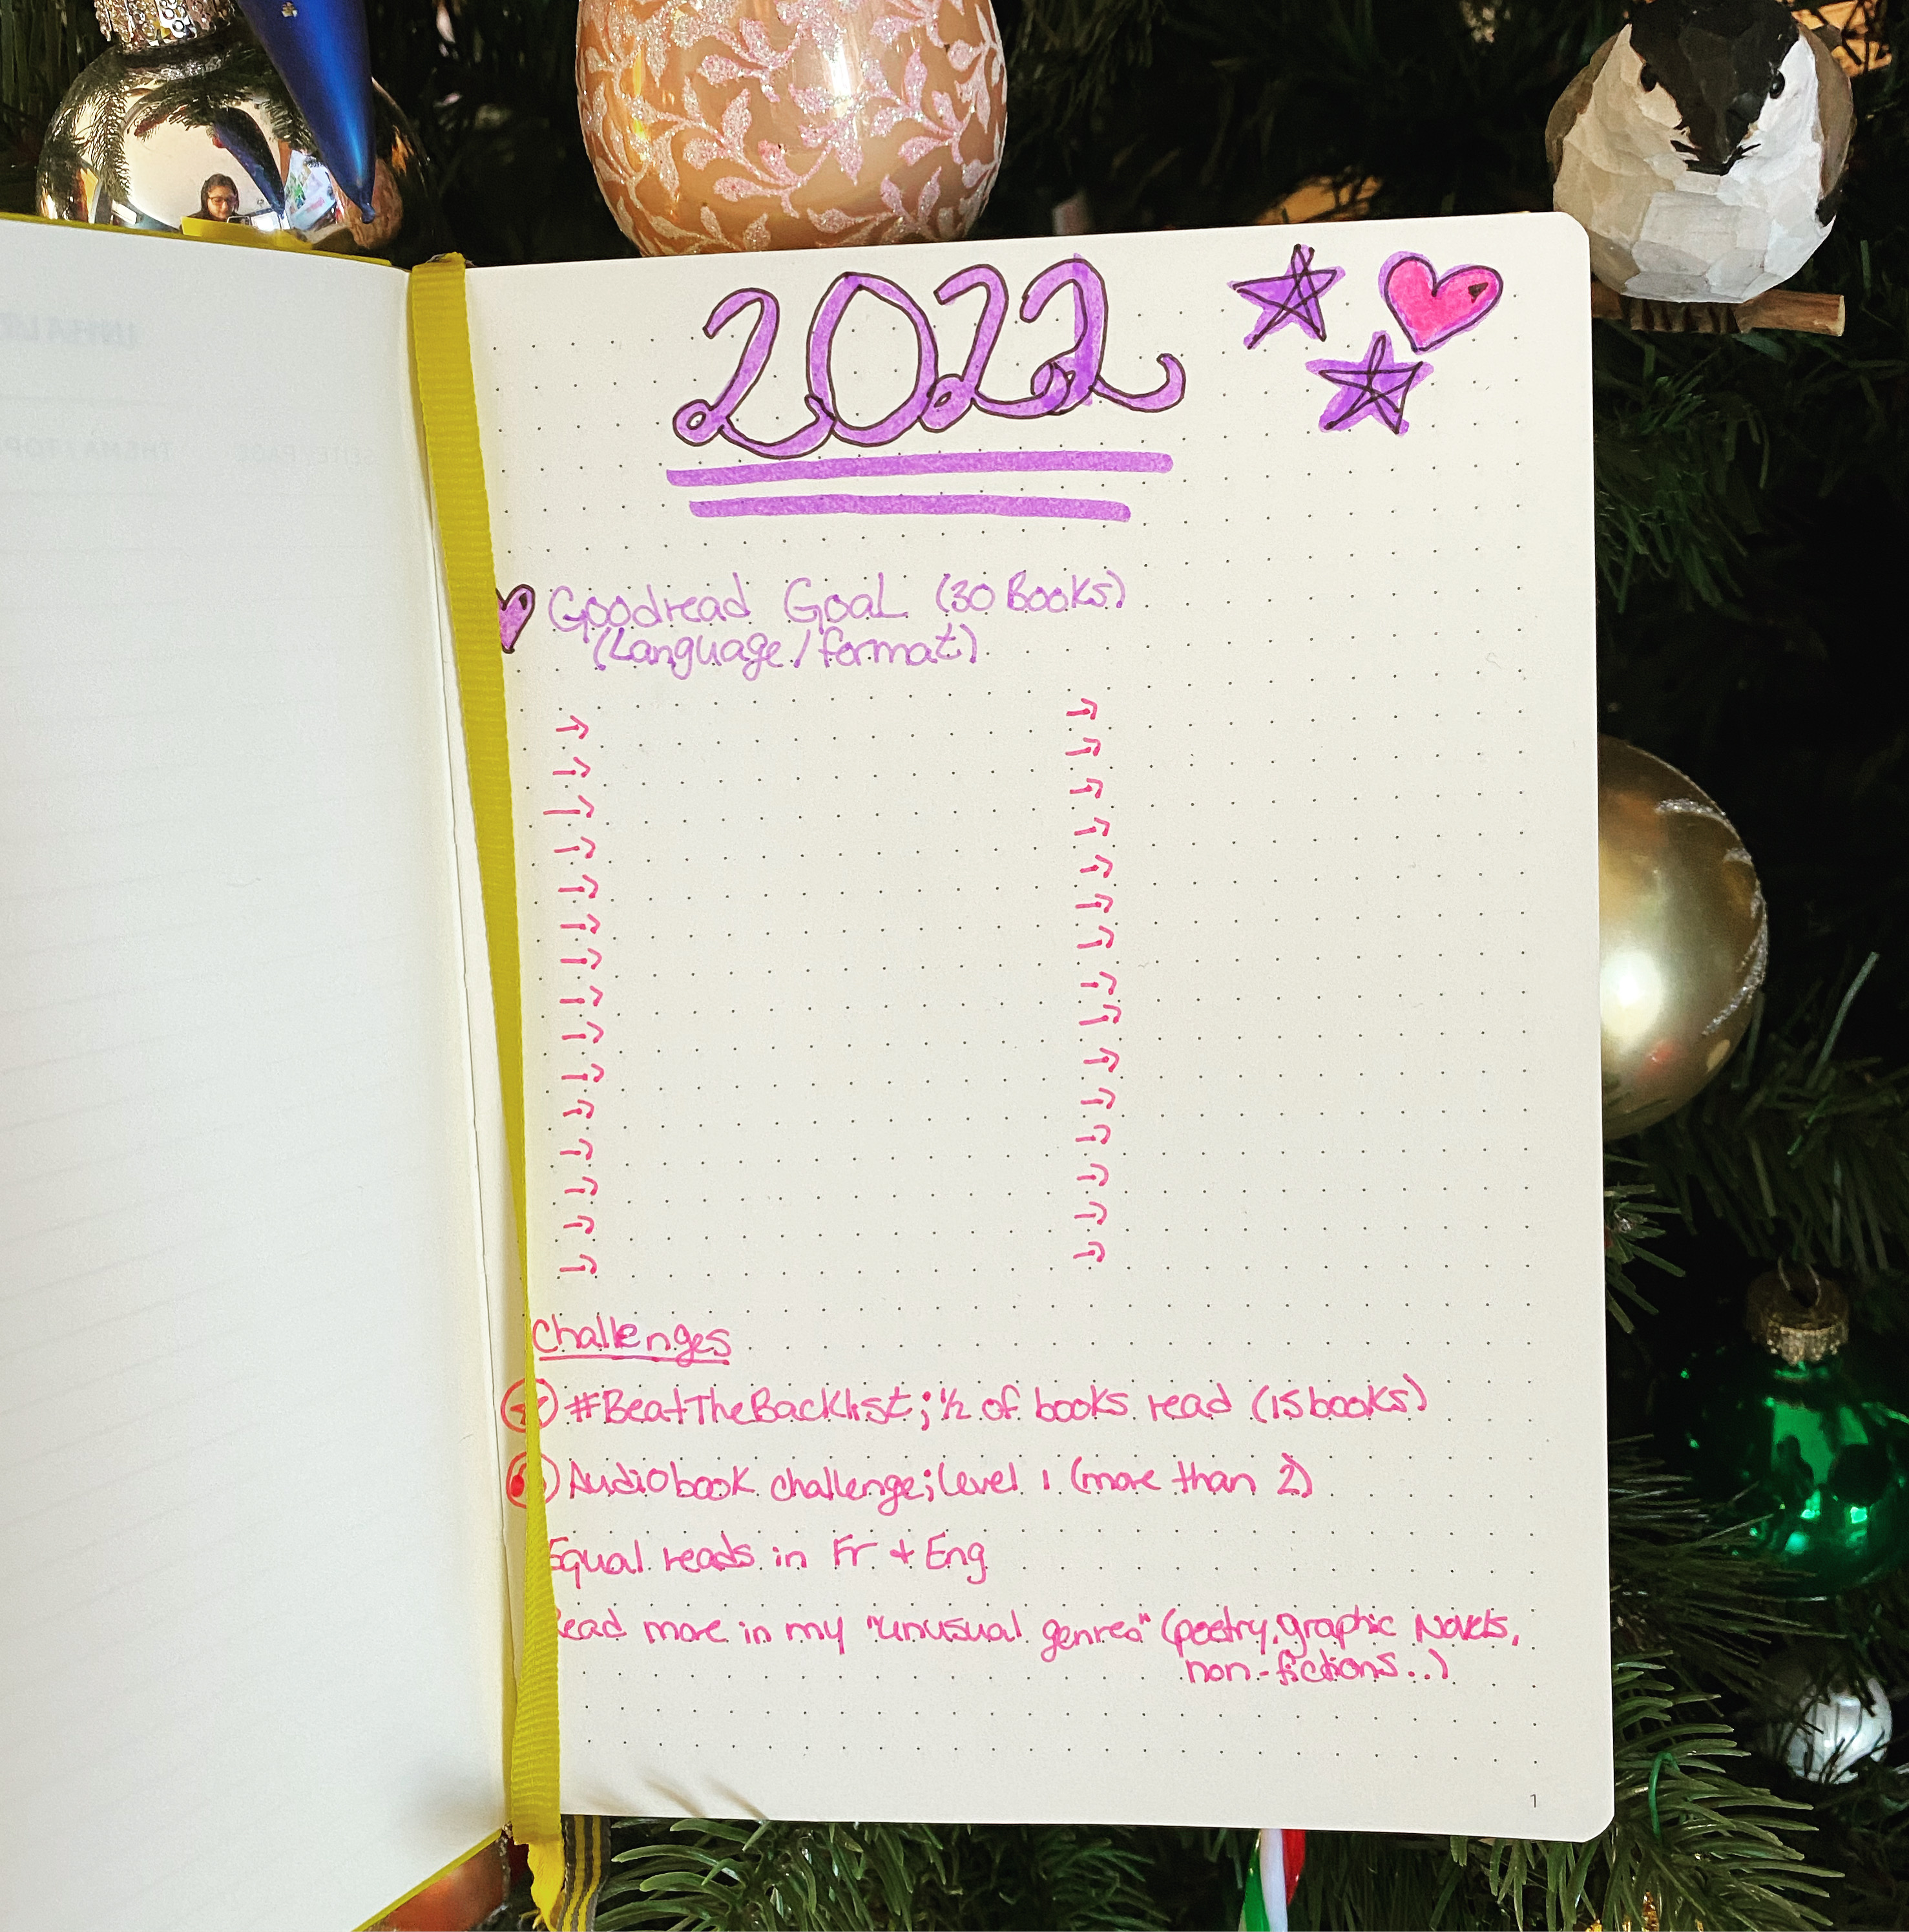 2022
Goodread Goal (30 Books)
(Language/format)
Challenges
#BeatTheBacklist; ½ of books read (15 books)
Audiobook challenge; level 1 (more than 2)
Equal reads in Fr + Eng
Read more in my "unusual genres" (poetry, graphic Novels,
non-fictions..)
1